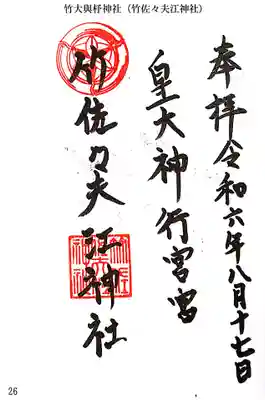 竹大與杼神社（竹佐々夫江神社）
奉拝令和六年八月十七日
皇大神行宮
竹佐々夫江神社
26